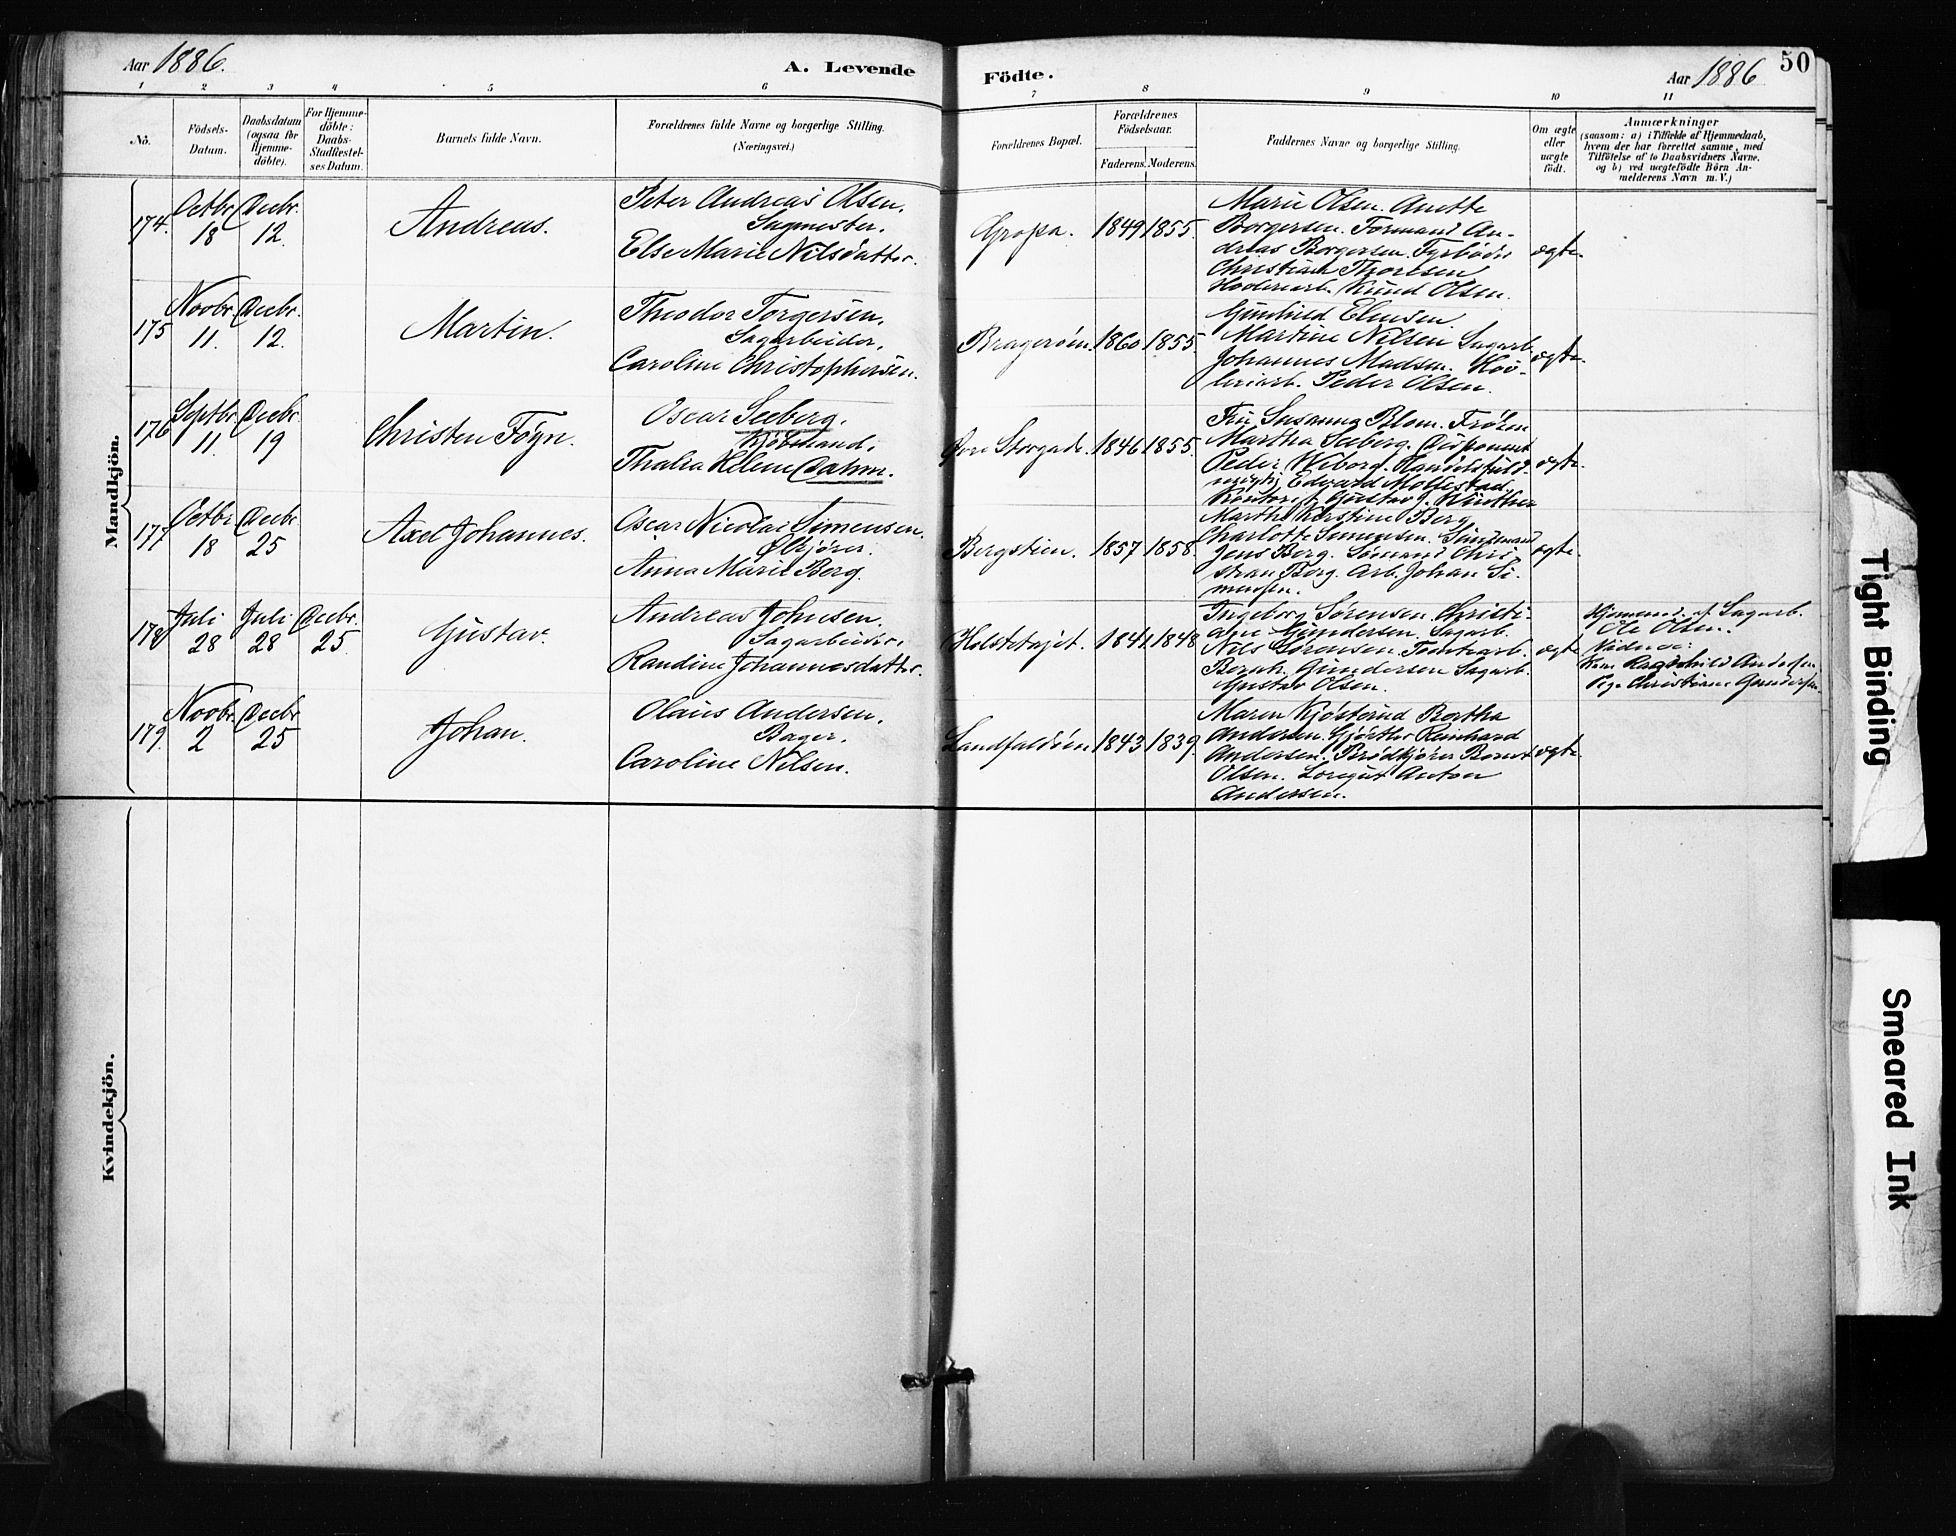 Aar 1886.
A. Levende
Födte.
Aar 1886
50
1 2 3 4 5 6 7 8 9 10 11
No.
Födsels-
Datum.
Daabsdatum
(ogsaa for
Hjemme-
döbte).
For Hjemme-
döbte:
Daabs-
Stadfæstel-
ses Datum.
Barnets fulde Navn.
Forældrenes fulde Navne og borgerlige Stilling.
(Næringsvei.)
Forældrenes Bopæl.
Forældrenes
Födselsaar.
Faderens. Moderens.
Faddernes Navne og borgerlige Stilling.
Om ægte
eller
uægte
födt.
Anmærkninger
(saasom: a) i Tilfælde af Hjemmedaab,
hvem der har forrettet samme, med
Tilföielse af to Daabsvidners Navne,
og b) ved uægtefödte Börn An-
melderens Navn m. V.)
Mandkjön.
174.
Octbr
18
Decbr.
12.
Andreas.
Peter Andreas Olsen,
Sagmester,
Else Marie Nilsdatter.
Gropa.
1849 1855.
Marie Olsen. Anette
Borgersen. Formand An-
dreas Borgersen. Fyrbøder
Christian Thoresen
Høvleriarb. Knud Olsen.
ægte.
175
Novbr.
11.
Decbr.
12.
Martin.
Theodor Torgersen,
Sagarbeider,
Caroline Christophersen.
Bragerøen.
1860 1855.
Gunhild Elensen.
Martine Nilsen Sagarb.
Johannes Madsen. Høv-
leriarb. Peder Olsen.
ægte.
176
Septbr.
11.
Decbr.
19
Christen Föyn.
Oscar Seeberg,
Kjøbmand,
Thalia Helene Dahm.
Øvre Storgade.
1846 1855.
Fru Susanna Blom. Frøken
Martha Seeberg. Disponent
Peder Wiborg. Handelsfuld-
mægtig Edvard Mollestad.
Kontorist Gustav J. Günther
ægte.
177
Octbr
18
Decbr
25
Axel Johannes.
Oscar Nicolai Simensen
Ølkjører.
Anna Marie Berg.
Bergstien.
1857 1858.
Marthe Kirstine Berg
Charlotte Simensen. Sandmand
Jens Berg. Sømand Chri-
stian Berg. Arb. Johan Si-
mensen.
ægte.
178
Juli
28
Juli
28
Decbr.
25
Gustav.
Andreas Johnsen.
Sagarbeider,
Randine Johannesdatter.
1841. 1848
Ingeborg Sørensen Christi-
ane Gundersen. Sagarb.
Nils Sørensen. Tomtearb.
Bernh. Gundersen Sagarb.
Gustav Olsen.
ægte
Hjemmed. af Sagarb.
Ole Olsen.
Vidner:
Kone Ragnhild Andersen
Pige Christiane Gundersen
179.
Novbr.
2
Decbr
25
Johan.
Olaus Andersen,
Bager.
Caroline Nilsen.
Landfaldøen.
1843 1839.
Maren Kjøsterud Bertha
Andersen. Gjørtler Reinhard
Andersen. Brødkjører Bernt
Olsen. Anton
Andersen.
ægte
Kvindekjön.
Tight Binding
Smeared Ink